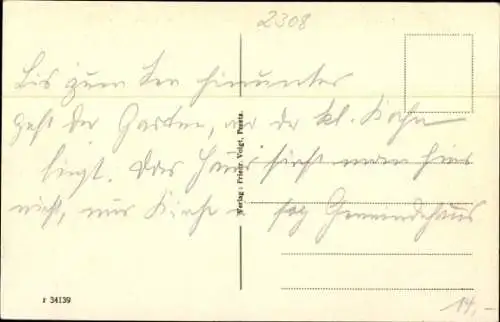 2308
bis zum See hinunter
geht der Garten, wo der kl. Kahn
liegt. Das Haus sieht man hier
nicht, nur Kirche u sog Gemeindehaus
Verlag: Friedr. Voigt, Preetz.
r 34139
14,-